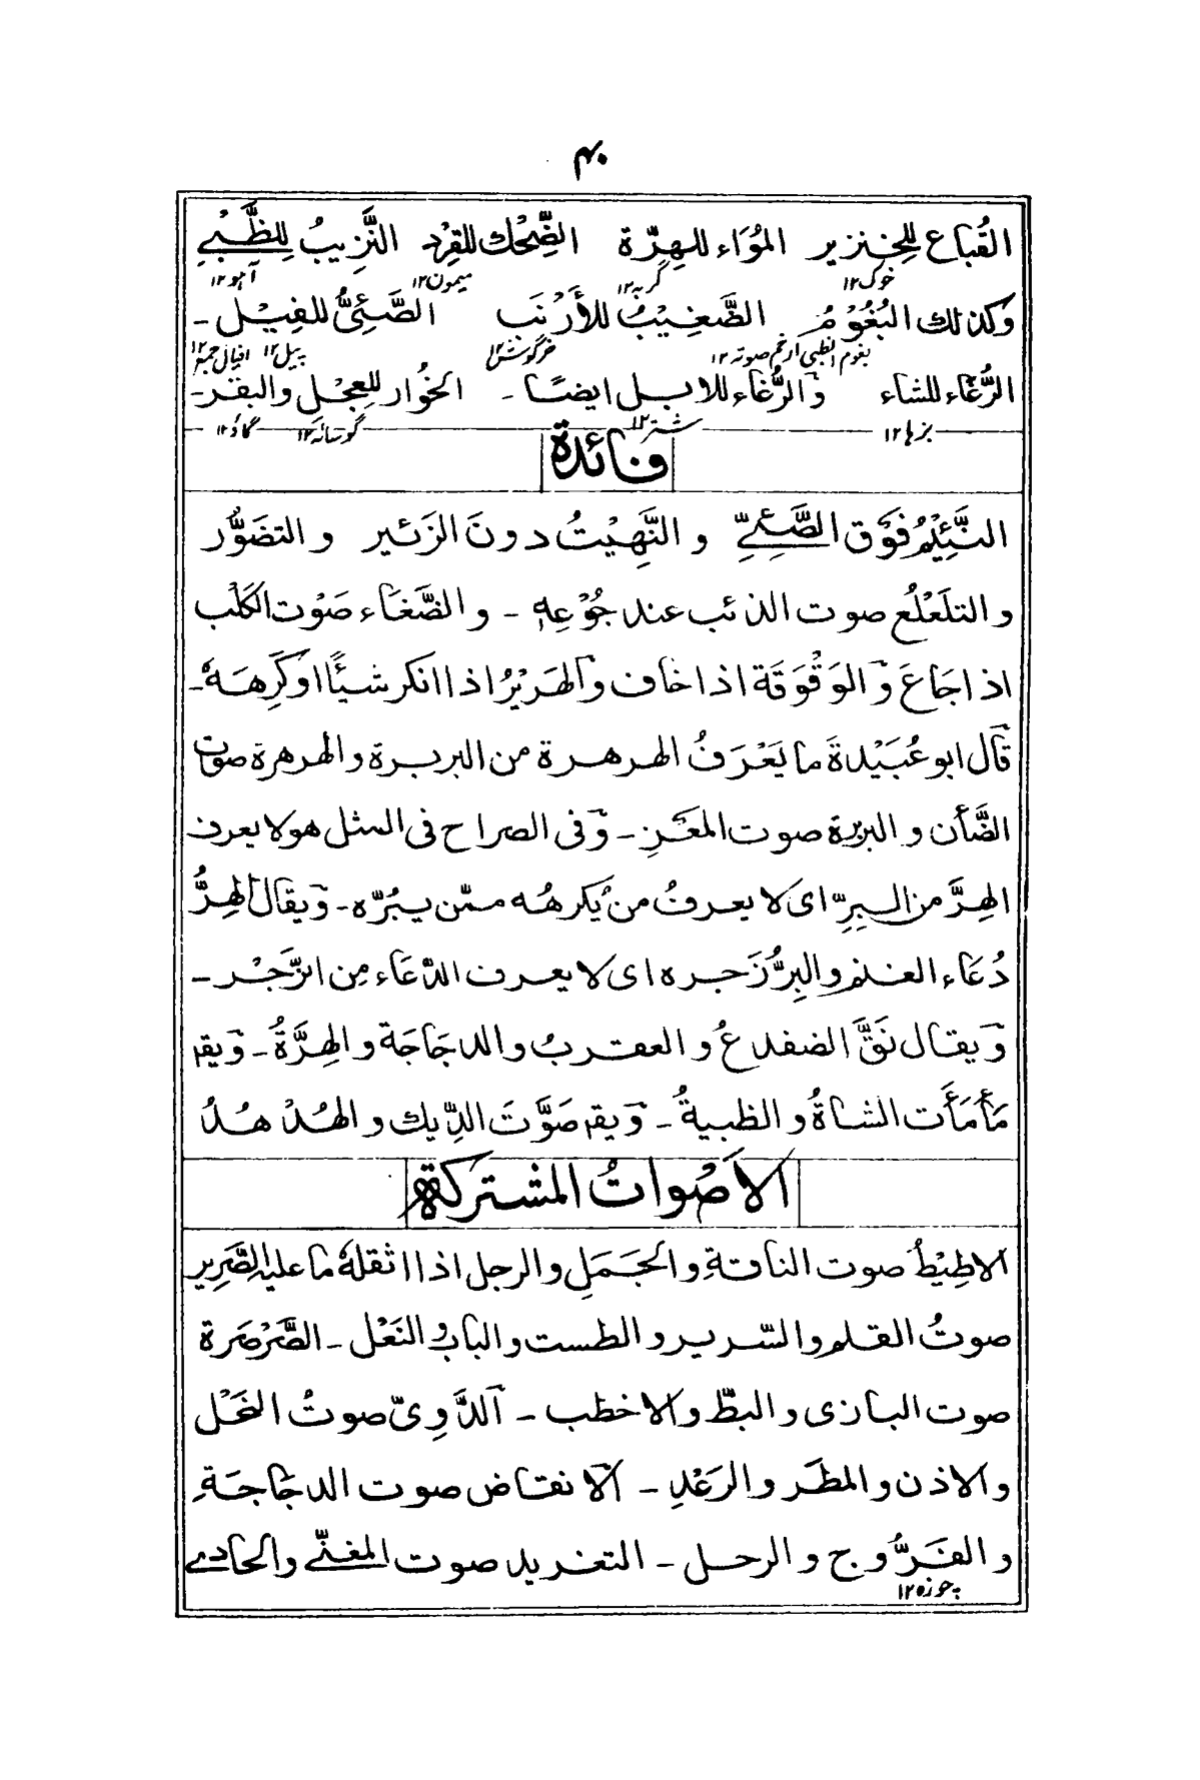 ۴۰
القُباع للخِنزير المُوَاء للهِرَّة الضِّحْك للقِرْد النَّزِيبُ للِظَّبْيِ
خوک۱۲ گربہ۱۲ میمون۱۲ آہو۱۲
وكذلك البُغُوْمُ الضَّغِيْبُ للأَرْنَب الصَّئِىُّ للفِيْل ـ
بغوم الظبی ارخم صوتہ ۱۲ خرگوش۱۲ پیل۱۲
الرُّغَاء للشاء وَالرُّغَاء للابل ايضًا ـ الخُوَار للعِجْلِ والبقرـ
بزہا۱۲ شتر۱۲ گوسالہ۱۲ گاؤ۱۲
فائدة
النَّئِيْمُ فَوْق الصَّئِيِّ و النَّهِيْتُ دونَ الزَئير و التضَوُّر
و التلَعْلُع صوت الذئب عند جُوْعِهٖ ـ و الضَّغَاء صَوْت الكَلْب
اذا جَاعَ وَالوَقْوَقَة اذا خاف وَالهَرِيْرُ اذا انكر شيئًا اوكَرِهَهٗ ـ
قَال ابو عُبَيْدةَ ما يَعْرَفُ الهرهرة من البربرة و الهرهرة صوت
الضَّأن و البربرة صوت المَعْزِ ـ وَفى الصراح فى المثل هو لا يعرف
الهِرَّ من البِرِّ اى لا يعرفُ من يَكرهُه ممّن يبُرّه ـ وَيقال الهِرُّ
دُعَاء الغنم والبِرُّ زَجره اى لا يعرف الدُّعَاء مِن الزَّجْر ـ
وَيقال نَقَّ الضفدعُ و العقربُ و الدجَاجَة و الهِرَّةُ ـ وَيقم
مَأمَأَت الشاةُ و الظبيةُ ـ وَيقم صَوَّتَ الدِّيك و الهُدْهُدُ
الاَصْواتُ المشتركة
الاطِيْطُ صوت الناقةِ و الجَمَلِ و الرجل اذا اثقلهٗ ما عليه الصَّرِير
صوتُ القلم و السّرير و الطست و الباب و النَعْل ـ الصَّرْصَرة
صوت البازى و البطّ و الاخطب ـ اَلدَّوِىّ صوتُ النَحْل
و الاذن و المطَر و الرَعْدِ ـ اَلانقاض صوت الدجَاجَةِ
و الفَرُّوج و الرحل ـ التغريد صوت المغنّي و الحادي
چوزہ۱۲